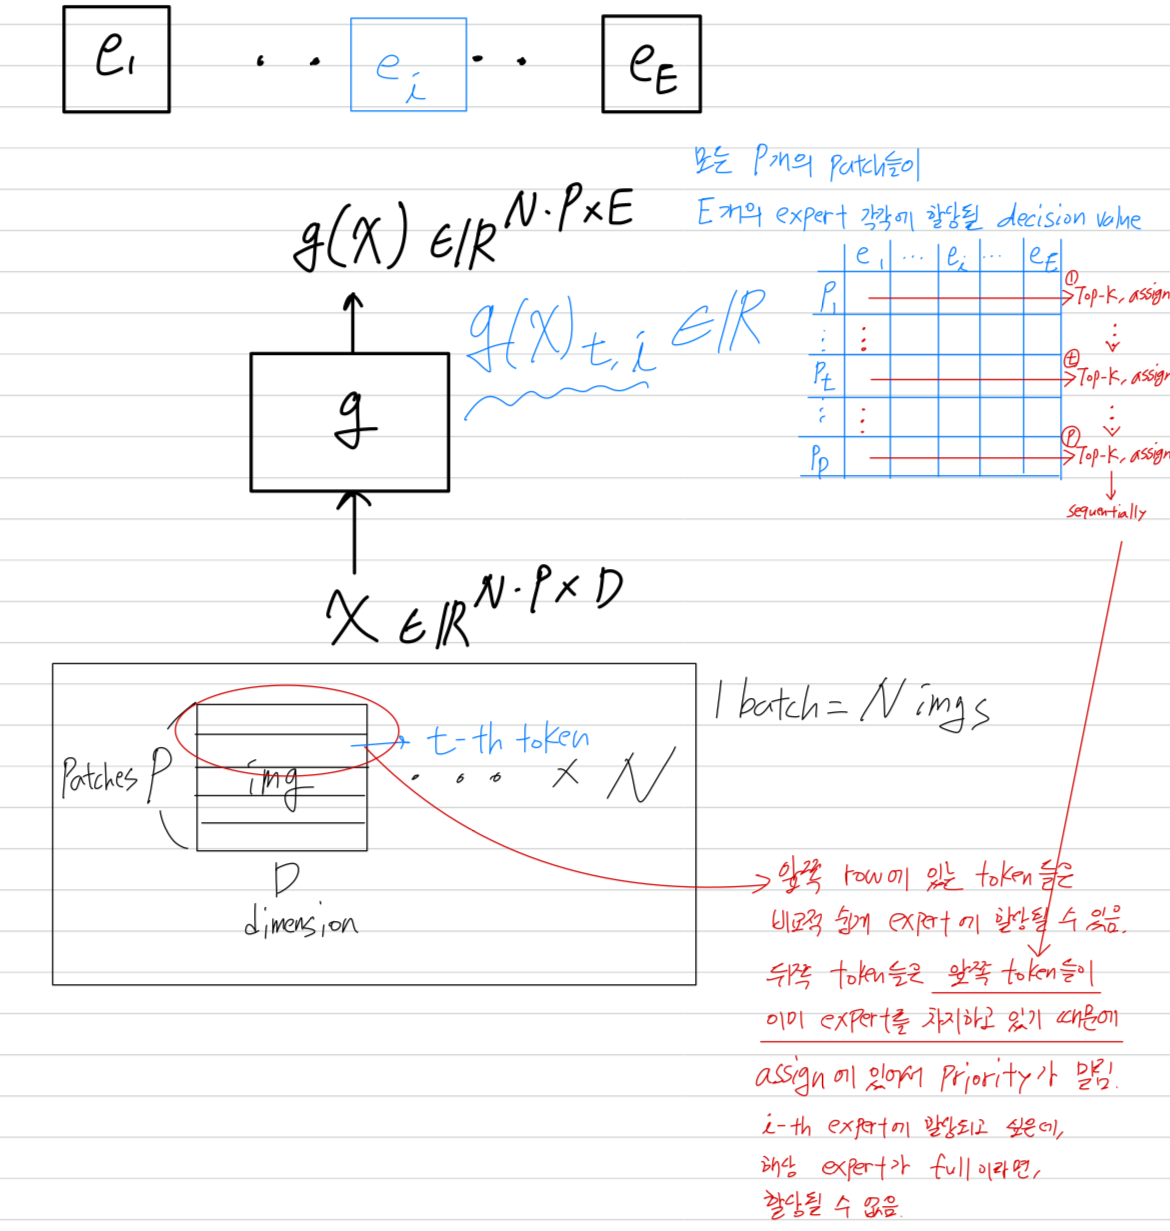 e₁ · · e_i · · e_E
모든 P개의 patch들이
E개의 expert 각각에 할당될 decision value
g(X) ∈ ℝ^{N·P×E}
g(X)_{t,i} ∈ ℝ
e₁ ... e_i ... e_E
P₁ ① Top-k, assign
⋮ ⋮ ⋮
P_t ⓣ Top-k, assign
⋮ ⋮ ⋮
P_P Ⓟ Top-k, assign
sequentially
g
X ∈ ℝ^{N·P×D}
1 batch = N imgs
t-th token
Patches P img · · · × N
D
dimension
앞쪽 row에 있는 token들은
비교적 쉽게 expert에 할당될 수 있음.
뒤쪽 token들은 앞쪽 token들이
이미 expert를 차지하고 있기 때문에
assign에 있어서 Priority가 밀림.
i-th expert에 할당되고 싶은데,
해당 expert가 full이라면,
할당될 수 없음.